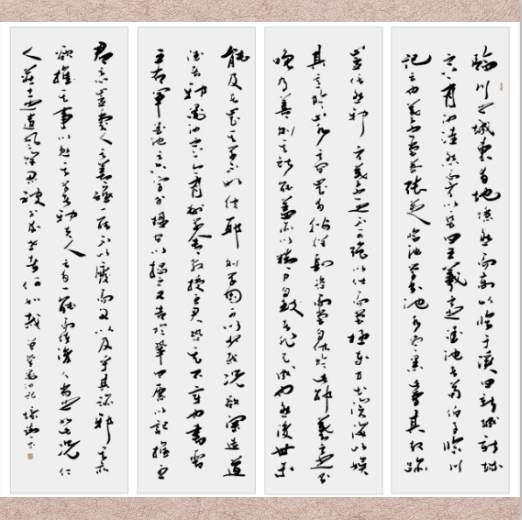 臨川之城東有地隱然而高以臨於溪曰新城新城
之上有池洼然而方以長曰王羲之之墨池者荀伯子臨川
記云也羲之嘗慕張芝臨池學書池水盡黑此為其故跡
豈信然邪方羲之之不可強以仕而嘗極東方出滄海以娛
其意於山水之間豈其徜徉肆恣而又嘗自休於此邪羲之之書
晚乃善則其所能蓋亦以精力自致者非天成也然後世未有
能及者豈其學不如彼耶則學固豈可以少哉況欲深造道
德者邪墨池之上今為州學舍教授王君盛恐其不章也書晉
王右軍墨池之六字於楹間以揭之又告於鞏曰願有記推王
君之心豈愛人之善雖一能不以廢而因以及乎其跡邪其亦
欲推其事以勉其學者邪夫人之有一能而使後人尚之如此況仁
人莊士之遺風餘思被於來世者何如哉曾鞏墨池記